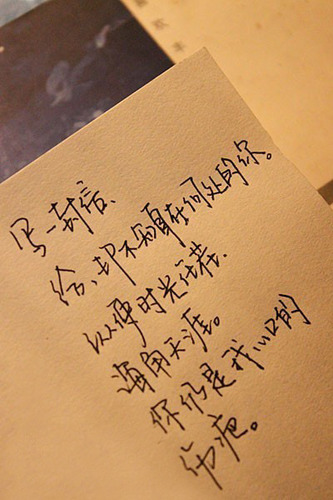 写一封信、
给、却不知身在何处的你。
以便时光荏苒.
海角天涯。
你仍是我心口的
伤疤。